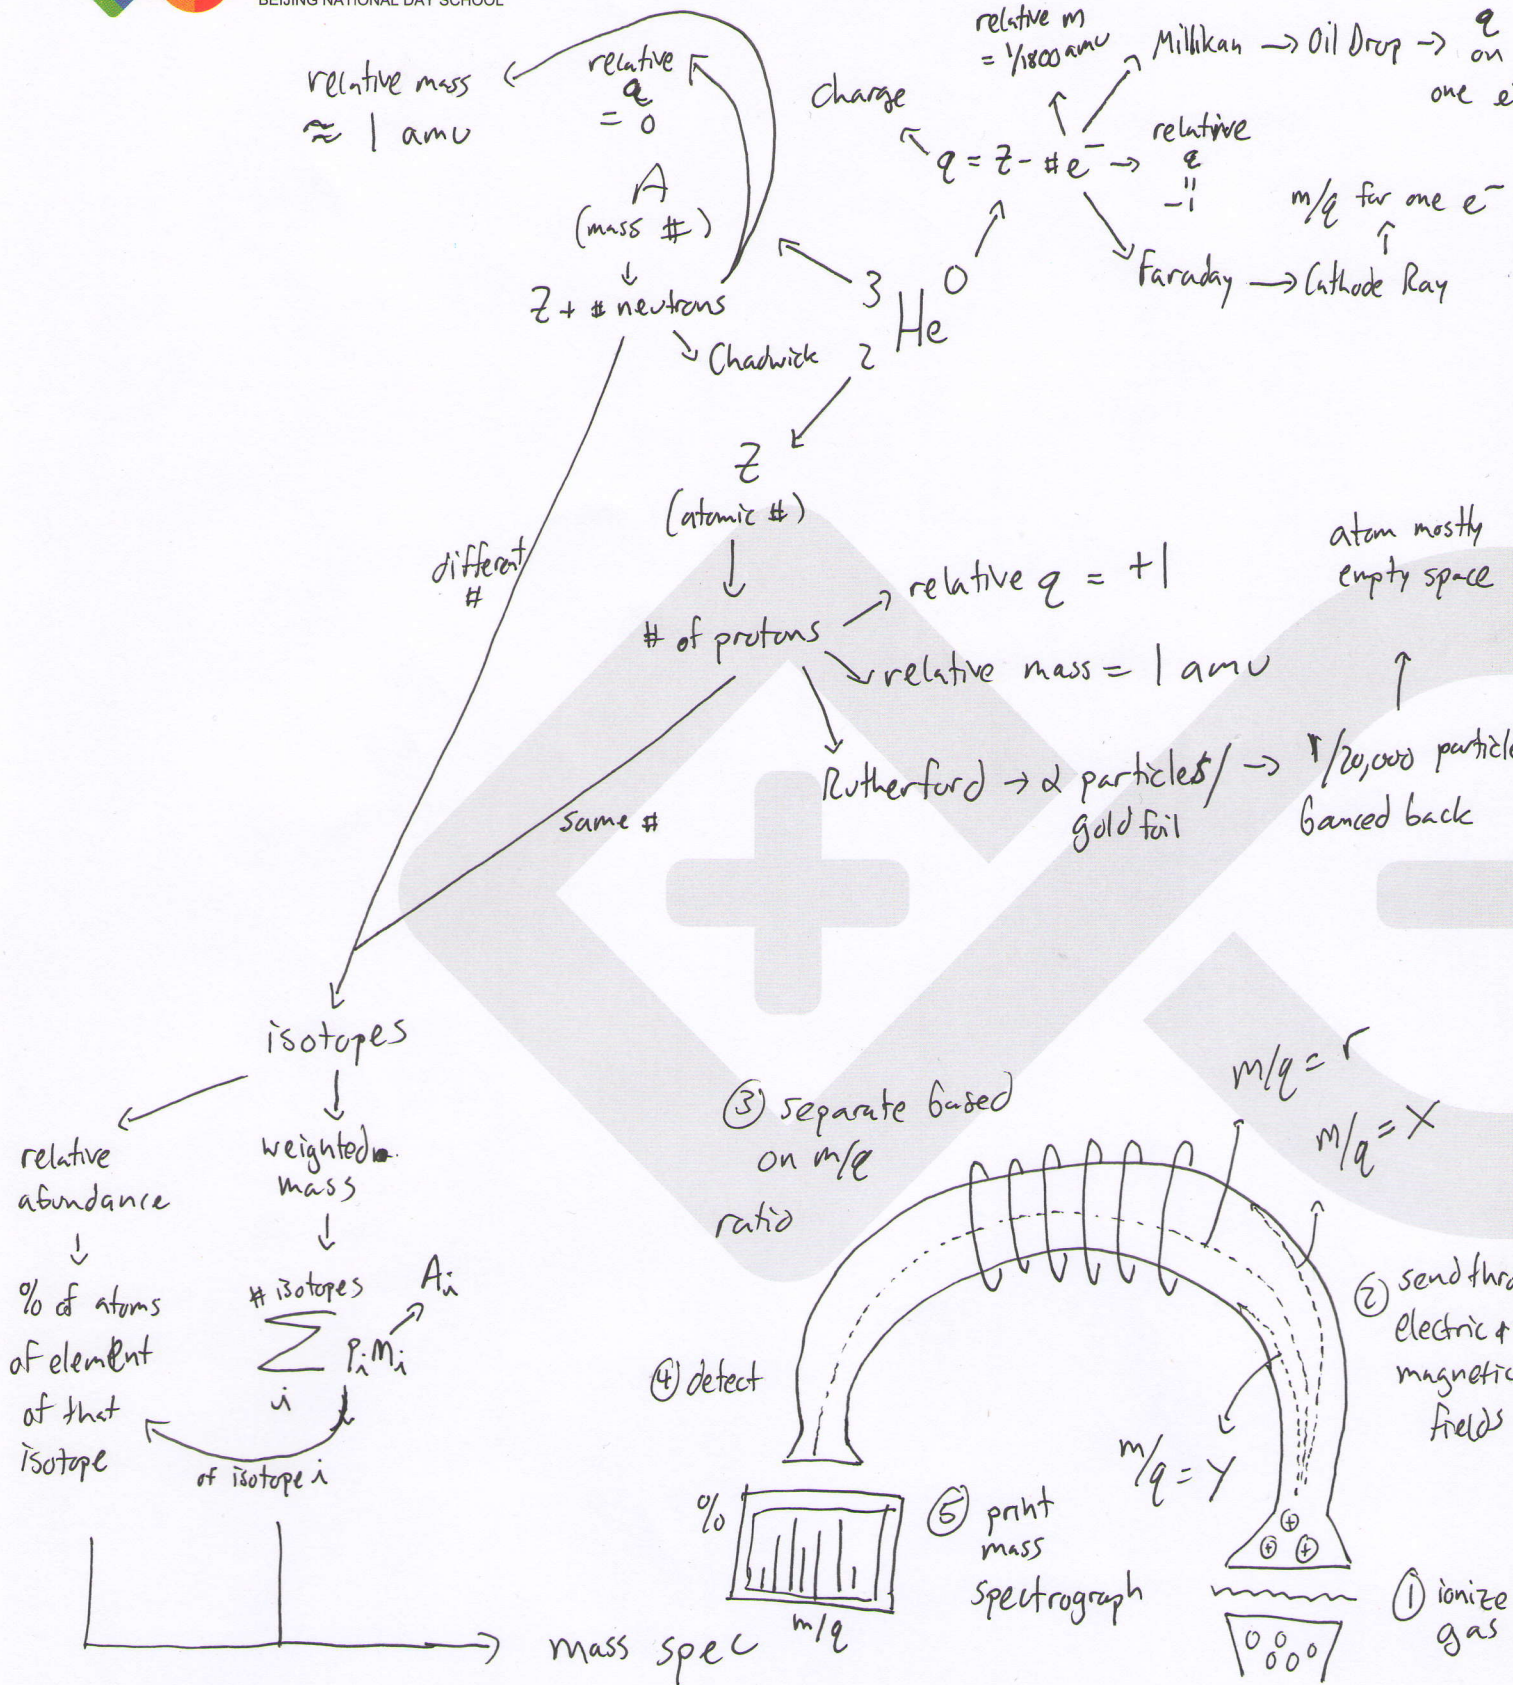 BEIJING NATIONAL DAY SCHOOL
relative mass
≈ 1 amu
relative
q
= 0
A
(mass #)
Z + # neutrons
Chadwick
relative m
= 1/1800 amu
Millikan → Oil Drop → q
on
one e
charge
q = Z - # e⁻ → relative
q
=
-1
m/q for one e⁻
Faraday → Cathode Ray
3
He
0
2
Z
(atomic #)
# of protons
relative q = +1
relative mass = 1 amu
Rutherford → α particles/
gold foil
→ 1/20,000 particle
bounced back
atom mostly
empty space
different
#
same #
isotopes
relative
abundance
% of atoms
of element
of that
isotope
weighted
mass
# isotopes
∑ pᵢmᵢ
i
Aᵢ
of isotope i
mass spec
③ separate based
on m/q
ratio
m/q = r
m/q = X
m/q = Y
② send thro
electric &
magnetic
fields
④ detect
%
m/q
⑤ print
mass
spectrograph
① ionize
gas